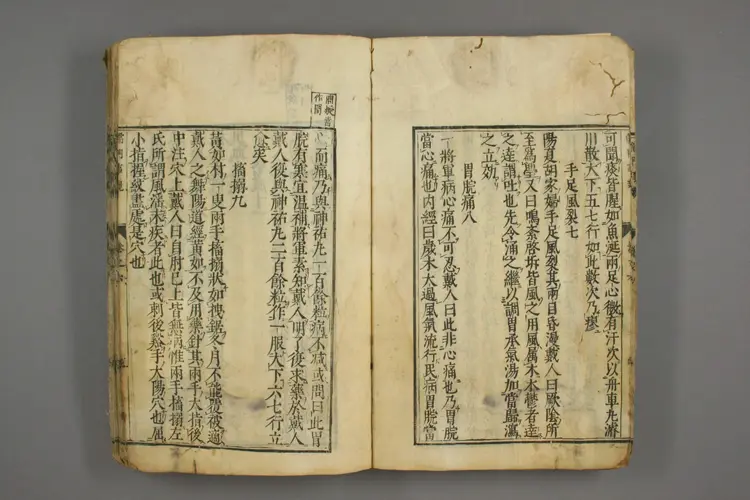 可聞痰皆腥如魚涎兩足心微有汗次以舟車丸濬
川散大下五七行如此數次乃瘳
手足風裂七
陽夏胡家婦手足風裂其兩目昏漫戴人曰厥陰所
至爲璺又曰鳴紊啓坼皆風之用風属木木鬱者達
之達謂吐也先令涌之繼以調胃承氣湯加當歸瀉
之立効
胃脘痛八
一將軍病心痛不可忍戴人曰此非心痛也乃胃脘
當心痛也内經曰歲木太過風氣流行民病胃脘當
心而痛乃與神祐丸一百餘粒病不减或問曰此胃
脘有寒宜温補將軍素知戴人明了復求藥於戴人
戴人復與神祐丸二百餘粒作一服大下六七行立
愈矣
搐搦九
黃如村一叟兩手搐搦狀如拽鋸冬月不能覆被適
戴人之舞陽道經黃如不及用藥針其兩手大指後
中注穴上戴人曰自肘已上皆無病惟兩手搐搦左
氏所謂風淫末疾者此也或刺後谿手太陽穴也屈
小指握紋盡處是穴也